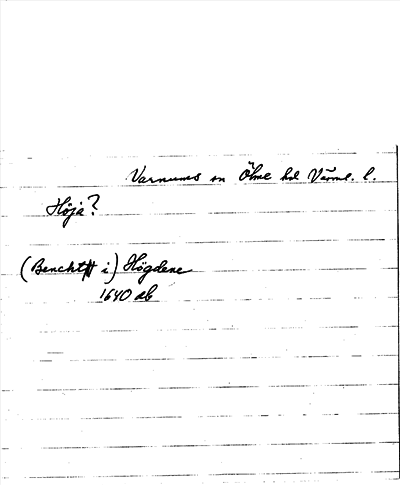 Varnums sn Ölme hd Värml. l.
Höja?
(Bencht i) Högdene
1640 ab